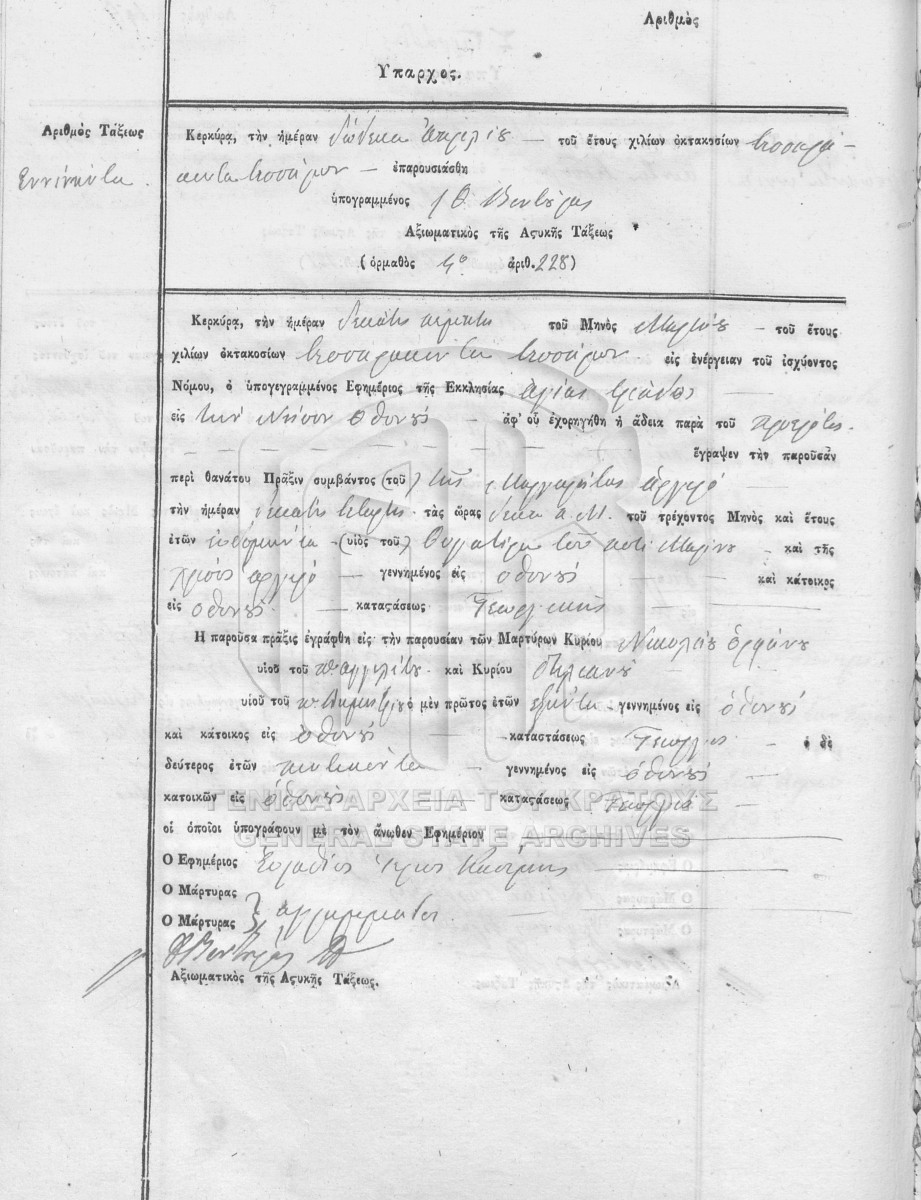 Αριθμὸς
Υπαρχος.
Αριθμὸς Τάξεως
Εννενήντα.
Κερκύρα, τὴν ἡμέραν δώδεκα Απριλίου — τοῦ ἔτους χιλίων ὀκτακοσίων τεσσαρά-
κοντα τεσσάρων — ἐπαρουσιάσθη
ὑπογραμμένος Θ. Βεντούρας
Αξιωματικὸς τῆς Αςυκῆς Τάξεως
(ὁρμαθὸς 4ο ἀριθ. 228)
Κερκύρᾳ, τὴν ἡμέραν δεκάτη πέμπτη τοῦ Μηνὸς Μαρτίου — τοῦ ἔτους
χιλίων ὀκτακοσίων τεσσαρακόντα τεσσάρων εἰς ἐνέργειαν τοῦ ἰσχύοντος
Νόμου, ὁ ὑπογεγραμμένος Εφημέριος τῆς Εκκλησίας αγίας τριάδος
εἰς την Νήσον οθονούς — ἀφ' οὗ ἐχορηγήθη ἡ ἄδεια παρὰ τοῦ
ἔγραψεν τὴν παροῦσαν
περὶ θανάτου Πρᾶξιν συμβάντος (τοῦ) της Μαργαρίτας ἀργυρό
τὴν ἡμέραν δεκάτη τετάρτη τὰς ὥρας δέκα π. Μ. τοῦ τρέχοντος Μηνὸς καὶ ἔτους
ἐτῶν εβδομήντα (υἱὸς τοῦ) θυγατέρα τοῦ ποτὲ Μαρίνου — καὶ τῆς
αργυρό — γεννημένος εἰς οθονούς — καὶ κάτοικος
εἰς οθονούς — καταςάσεως Γεωργικής
Η παροῦσα πρᾶξις ἐγράφθη εἰς τὴν παρουσίαν τῶν Μαρτύρων Κυρίου Νικολάου
υἱοῦ τοῦ καὶ Κυρίου
υἱοῦ τοῦ π. Δημητρίου ὁ μὲν πρῶτος ἐτῶν εξήντα γεννημένος εἰς ὀθονούς
καὶ κάτοικος εἰς ὀθονούς — καταστάσεως Γεωργός — ὁ δὲ
δεύτερος ἐτῶν πενήντα — γεννημένος εἰς ὀθονούς
κατοικῶν εἰς ὀθονούς — καταςάσεως Γεωργός
οἱ ὁποῖοι ὑπογράφουν μὲ τὸν ἄνωθεν Εφημέριον
Ο Εφημέριος
Ο Μάρτυρας
Ο Μάρτυρας } αγράμματοι
Βεντούρας
Αξιωματικὸς τῆς Αςυκῆς Τάξεως.
ΓΕΝΙΚΑ ΑΡΧΕΙΑ ΤΟΥ ΚΡΑΤΟΥΣ
GENERAL STATE ARCHIVES